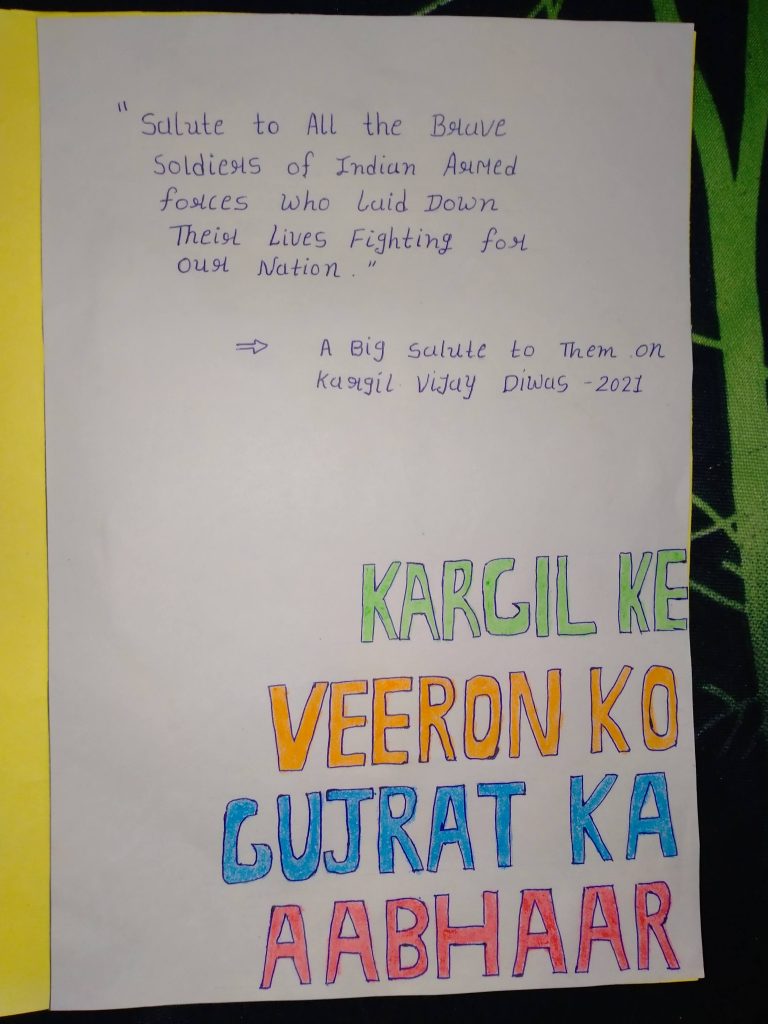 "Salute to All the Brave
Soldiers of Indian Armed
forces who laid Down
Their Lives Fighting for
our Nation."
⇒ A Big Salute to Them on
Kargil Vijay Diwas - 2021
KARGIL KE
VEERON KO
GUJRAT KA
AABHAAR